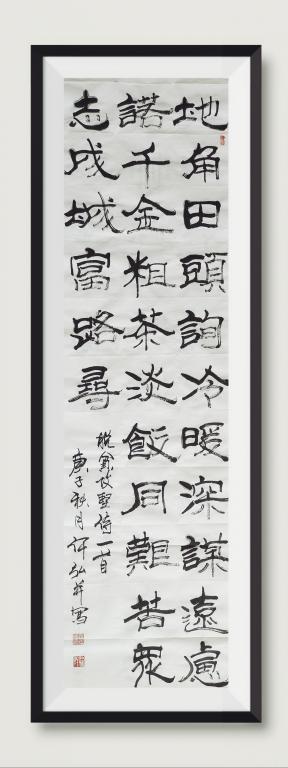 地角田頭詢冷暖深謀遠慮
諾千金粗茶淡飯同難苦眾
志成城富路尋
脱貧攻堅詩一首
庚子秋月